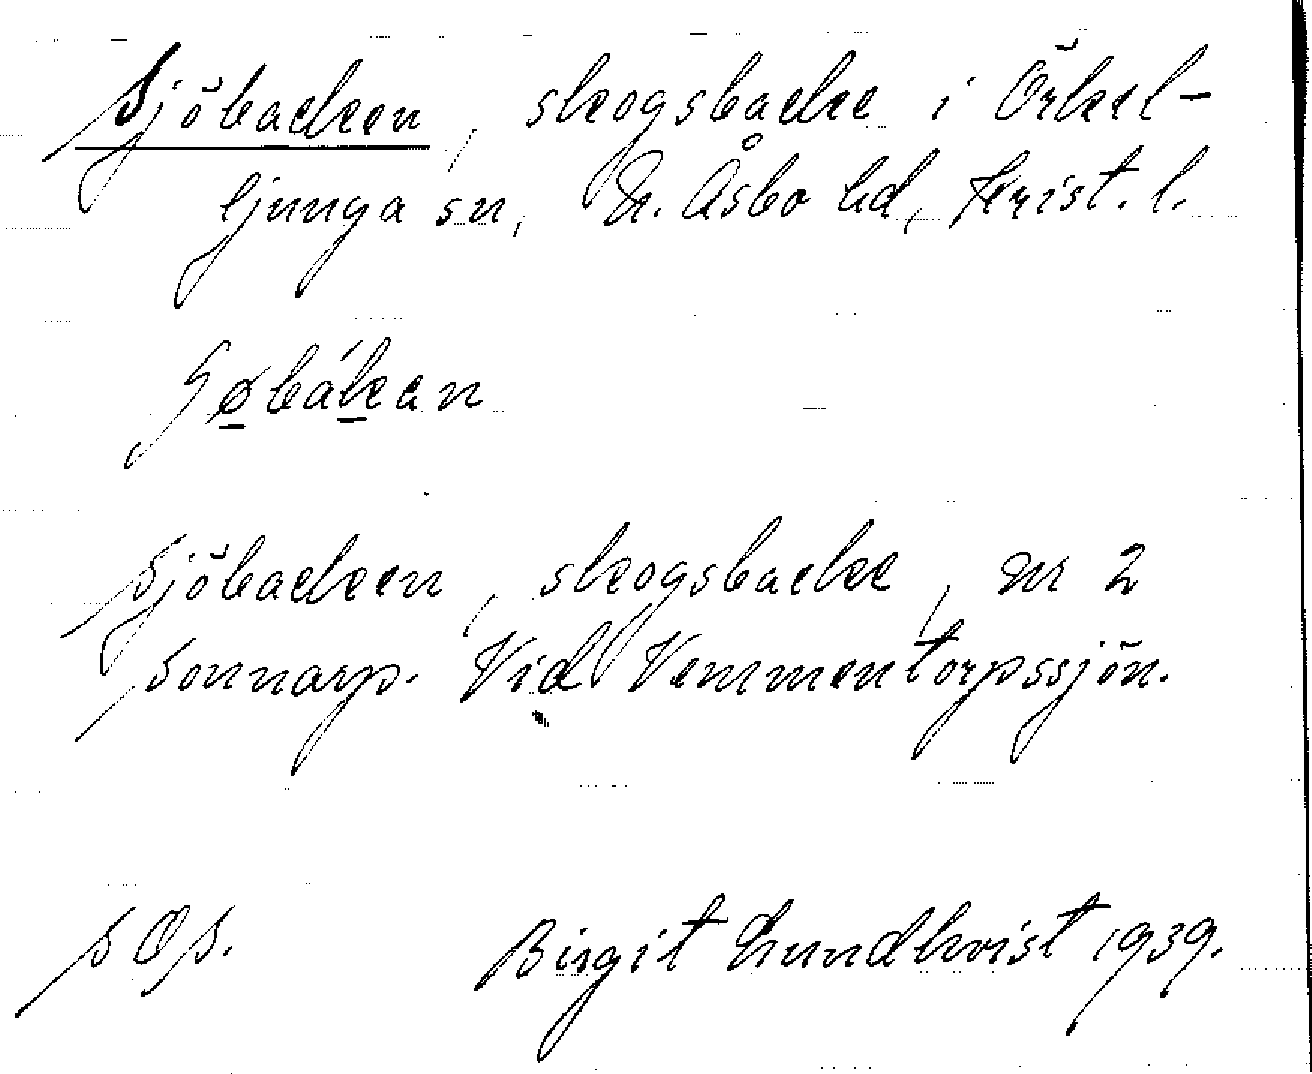 Sjöbacken, skogsbacke i Örkel-
ljunga sn, N. Åsbo hd, Krist. l.
Sjöbacken, skogsbacke, nr 2
Sonnarp. Vid Vemmentorpssjön.
Birgit Lundkvist 1939.